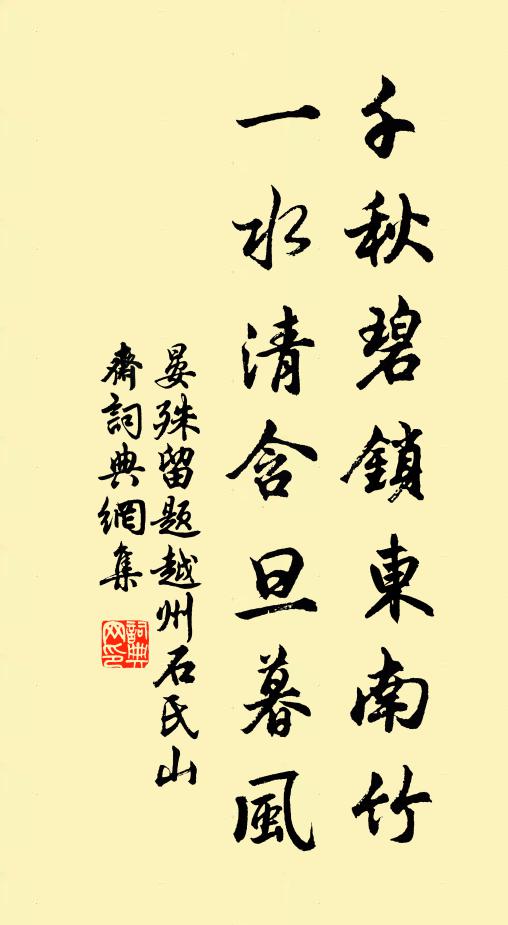 千秋碧鎖東南竹
一水清含旦暮風
晏殊留題越州石氏山
齋詞典網集
詞典
网印